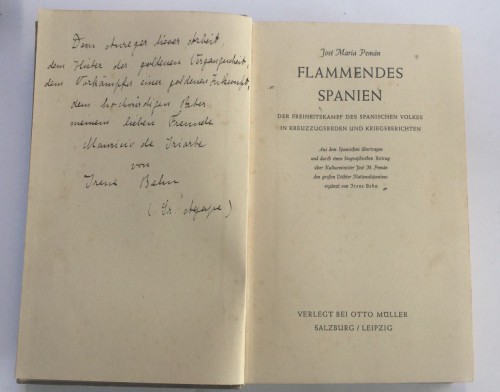 Dem Anreger dieser Arbeit,
dem Hüter der goldenen Vergangenheit,
dem Vorkämpfer einer goldenen Zukunft,
dem hochwürdigen Pater
meinem lieben Freunde
Mauricio de Iriarte
von
Irene Behn
(Sr. Agape)
José Maria Pemán
FLAMMENDES
SPANIEN
DER FREIHEITSKAMPF DES SPANISCHEN VOLKES
IN KREUZZUGSREDEN UND KRIEGSBERICHTEN
Aus dem Spanischen übertragen
und durch einen biographischen Beitrag
über Kultusminister José M. Pemán
den großen Dichter Nationalspaniens
ergänzt von Irene Behn
VERLEGT BEI OTTO MÜLLER
SALZBURG / LEIPZIG